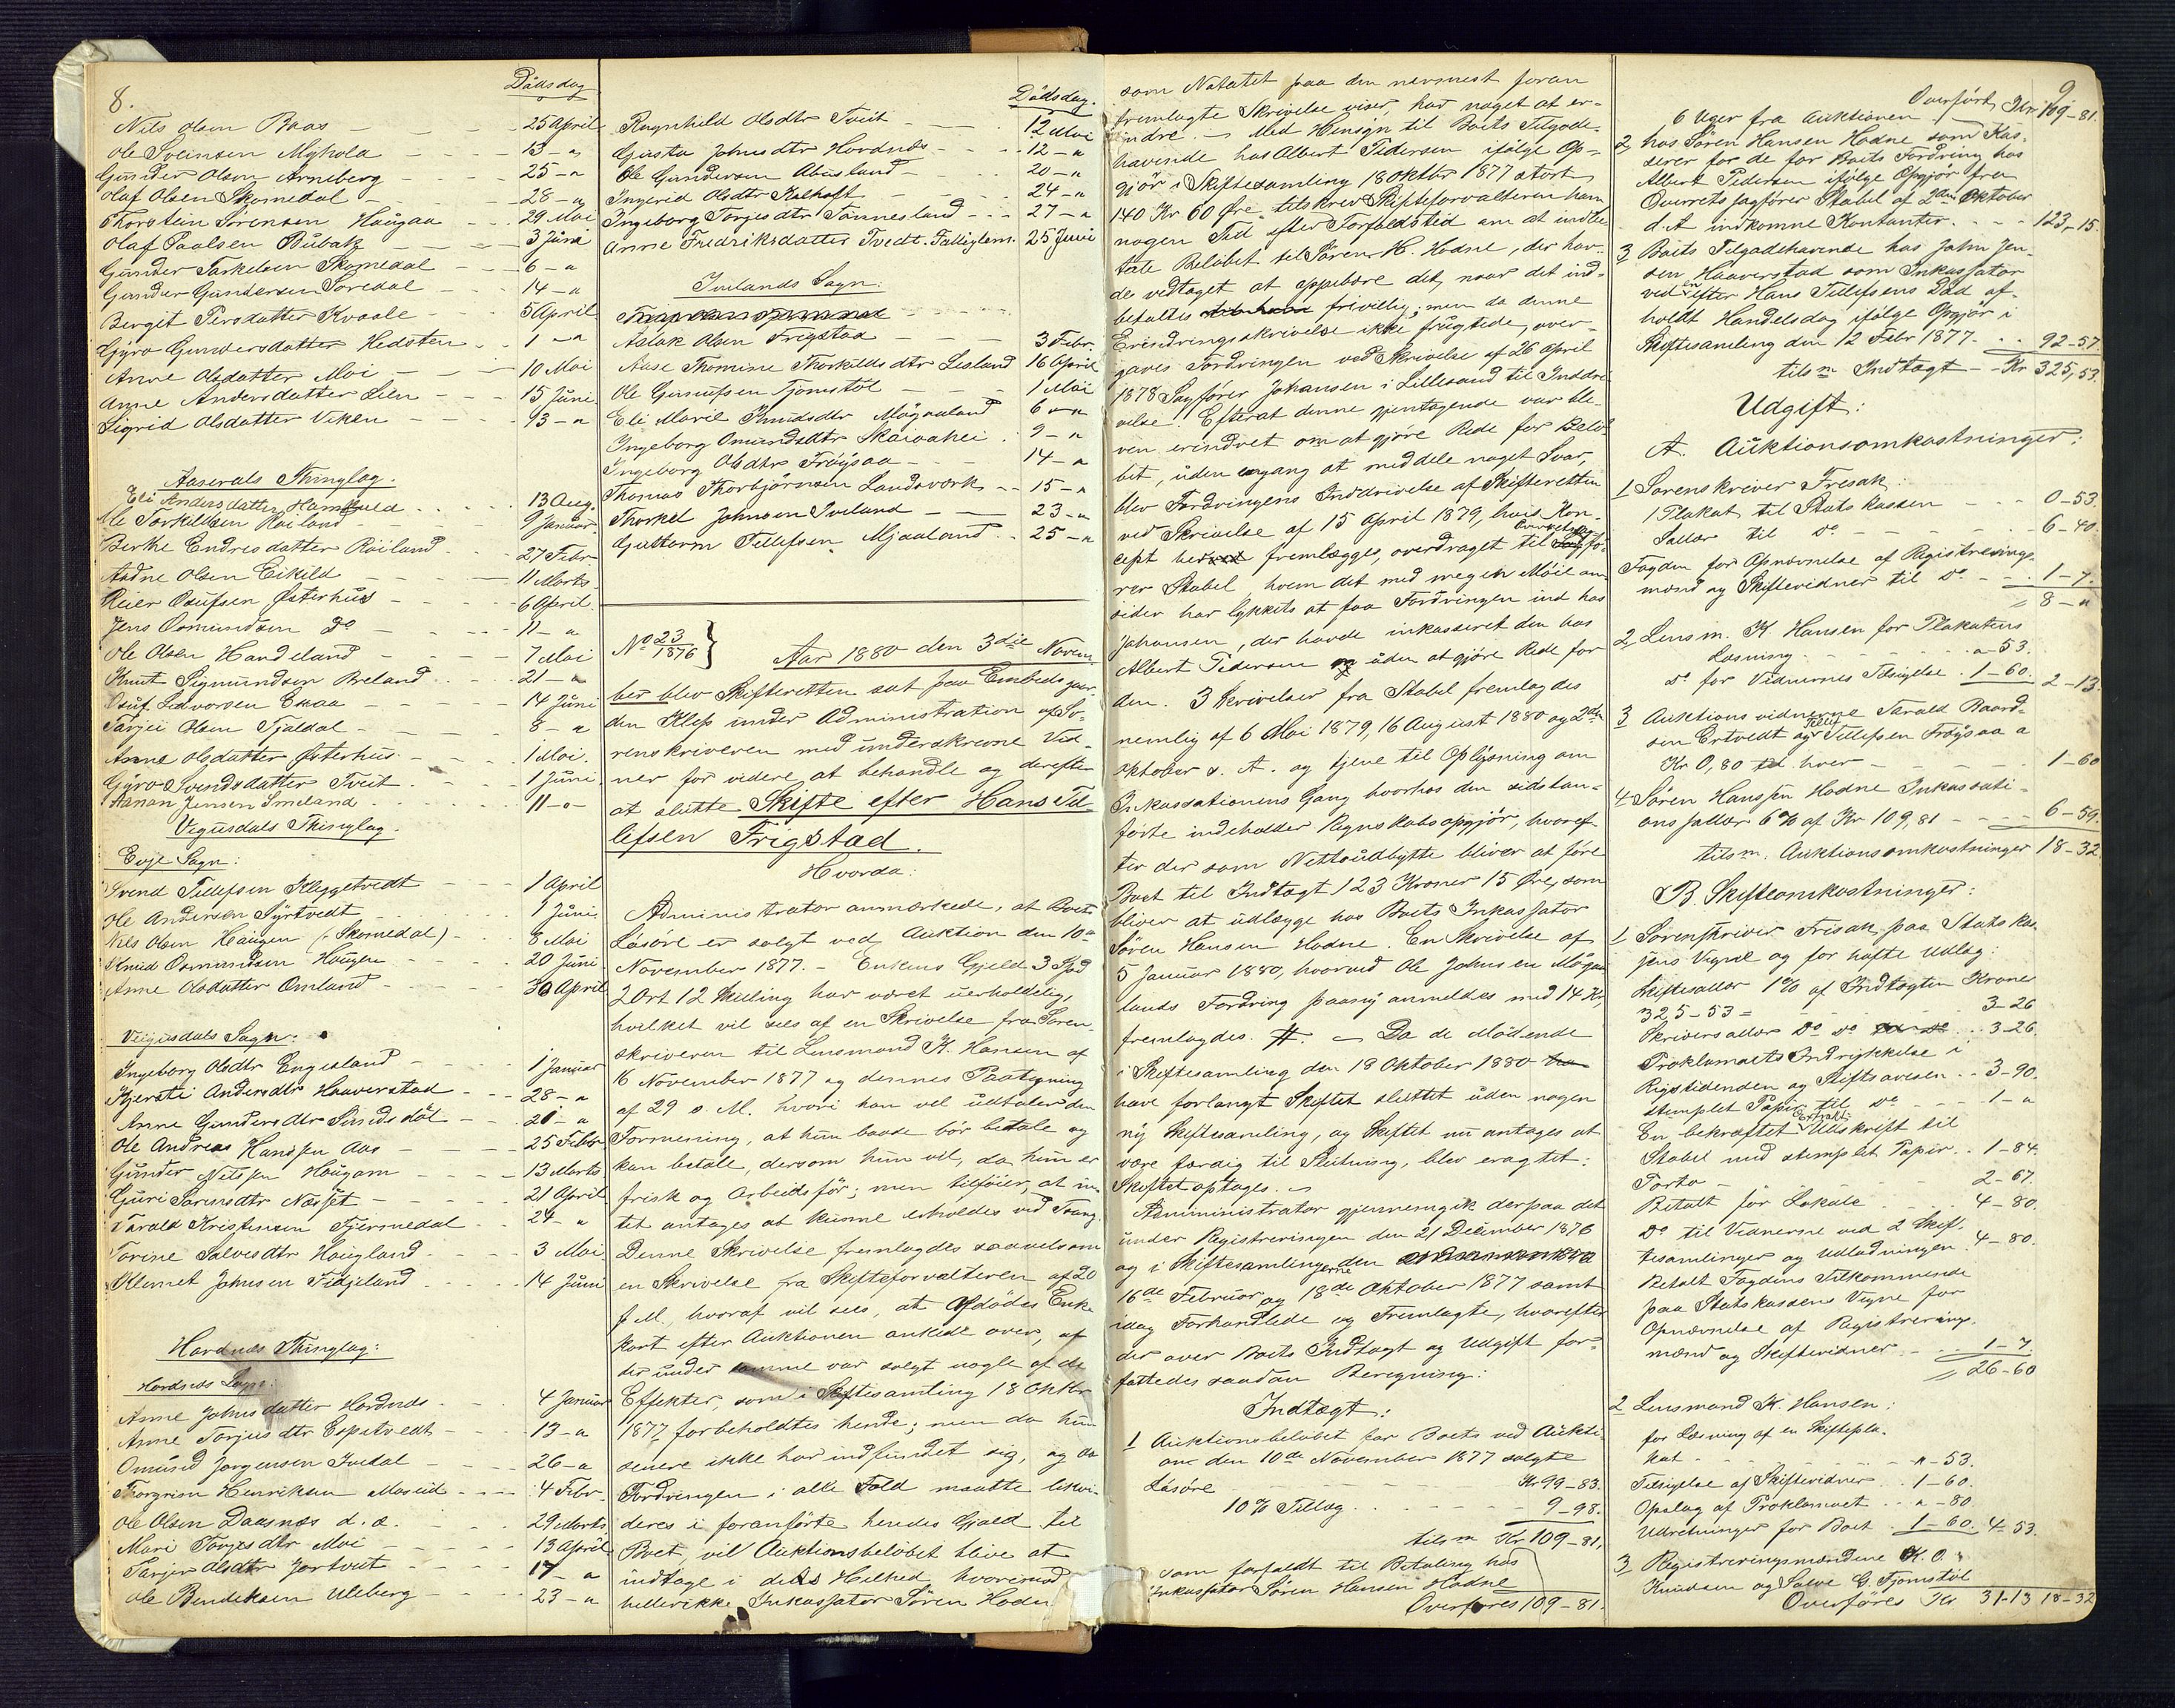 8.
Dödsdag
Nils Olsen Baas - - - 25 April
Ole Sveinsen Myhold - - - 13 - "
Gunder Olsen Arneberg - - - 25 - "
Olaf Olsen Skomedal - - - 28 - "
Thorstein Sørensen Haugaa - - 29 Mai
Olaf Paalsen Bübakk - - - 3 Juni
Gunder Tarkelsen Skomedal - - 6 - "
Gunder Gundersen Soredal - - 14 - "
Bergit Persdatter Kvaale - - 5 April
Gyro Gundersdatter Hedsten - - 1 - "
Anne Olsdatter Moi - - - 10 Mai
Anne Andersdatter Lien - - 15 Juni
Sigrid Olsdatter Viken - - 13 - "
Aaserals Thinglag.
Eli Andersdatter Ham - - 13 Aug.
Ole Torkildsen Röiland - - 9 Januar
Berthe Endresdatter Röiland - - 27 Febr.
Aadne Olsen Eikild - - - 11 Marts
Reier Osufsen Østerhus - - - 6 April
Jens Osmundsen Do - - - 11 - "
Ole Olsen Handeland - - - 7 Mai
Knut Sigmundsen Breland - - 21 - "
Osuf Ledvorsen Ekaa - - - 14 Juni
Tarjei Olsen Tjaldal - - - 8 - "
Anne Olsdatter Østerhus - - 1 Mai.
Gyro Svendsdatter Tveit - - 1 Juni.
Aanon Jensen Smeland - - 11 - "
Vegusdals Thinglag.
Evje Sogn:
Svend Tellefsen Kleggetvedt - - 1 April
Ole Andersen Syrtvedt - - - 1 Juni
Nils Olsen Haugen (Skomedal) - - 8 Mai
Knud Osmundsen Haugen - - 20 Juni
Anne Olsdatter Omland - - 30 April
Vegusdals Sogn:
Ingeborg Olsdtr Engesland - - 1 Januar
Kjersti Andersdtr Haaverstad - - 28 - "
Anne Gundersdtr Sindsdöl - - 20 - "
Ole Andreas Hansen Aas - - 25 Febr
Gunder Nilssen Haugom - - 13 Marts
Guri Sørensdtr Næsset - - 21 April
Tarald Kristensen Fjermedal - - 24 - "
Torine Salvesdtr Haugland - - 3 Mai
Klemet Johnsen Fidjeland - - 14 Juni
Hordnæs Thinglag:
Hordnæs Sogn:
Anne Johnsdatter Hordnæs - - 4 Januar
Anne Torjusdtr Espetvedt - - 13 - "
Omund Jorgensen Ivedal - - 26 - "
Thorgrim Henriksen Moseid - - 4 Febr
Ole Olsen Daasnæs d.æ. - - 29 Marts
Mari Torjesdtr Moi - - - 13 April
Tarjer Olsdtr Jortveit - - - 17 - "
Ole Bendiksen Uleberg - - - 23 - "
Dödsdag.
Ragnhild Olsdtr Tveit - - - 12 Mai
Gusta Johnsdtr Hordnæs - - 12 - "
Ole Gundersen Abusland - - 20 - "
Ingerid Olsdtr Kalhoft - - 24 - "
Ingeborg Torjesdtr Tønnesland - - 27 - "
Anne Fredriksdatter Tvedt. Fattiglem. 25 Juni
Ivelands Sogn:
Aslak Olsen Frigstad - - - 3 Febr.
Aase Thomine Thorkildsdtr Lisland 16 April
Ole Gunufsen Tjomstöl - - - 1 Mai
Eli Marie Knudsdtr Mögaaland 6 - "
Ingeborg Omundsdtr Skaivahei 9 - "
Ingeborg Olsdtr Fröysaa - - 14 - "
Thomas Thorbjörnsen Landsværk - - 15 - "
Thorkel Johnsen Iveland - - 23 - "
Guttorm Tellefsen Mjaaland - - 25 - "
No 23/1876 } Aar 1880 den 3die Novem-
ber blev Skifteretten sat paa Embedsgaar-
den Kleps under Administration af So-
renskriveren med underskrevne Vid-
ner for videre at behandle og derefter
at slutte Skifte efter Hans Til-
lefsen Frigstad.
Hvorda:
Administrator anmærkede, at Boets
Lösöre er solgt ved Auktion den 10de
November 1877. - Enkens Gjeld 3 Spd
2 Ort 12 Skilling har været uerholdelig,
hvilket vil sees af en Skrivelse fra Soren-
skriveren til Lensmand K. Hansen af
16 November 1877 og dennes Paategning
af 29 s. M. hvori han vel udtaler den
Formening, at hun baade bör betale og
kan betale, dersom hun vil, da hun er
frisk og Arbeidsför; men tilföier, at in-
tet antages at kunne erholdes ved Tvang.
Denne Skrivelse fremlagdes saavelsom
en Skrivelse fra Skifteforvalteren af 20
f. M., hvoraf vil sees, at Afdødes Enke
kort efter Auktionen ankede over, at
der under samme var solgt nogle af de
Effekter, som i Skiftesamling 18 Oktbr
1877 forbeholdtes hende; men da hun
senere ikke har indfundet sig, og da
Fordringen i alle Fald maatte likvi-
deres i foranförte hendes Gjeld til
Boet, vil Auktionsbelöbet blive at
indtage i dets Helhed, hvorimod
hellerikke Inkassator Sören Hodne
som Notatet paa den nævnest foran
fremlagte Skrivelse viser, har noget at er-
indre. - Med Hensyn til Boets Tilgode-
havende hos Albert Pedersen ifölge Op-
gjör i Skiftesamling 18 Oktbr 1877 stort
140 Kr 60 Öre, tilskrev Skifteforvalteren ham
nogen Tid efter Forfaldstid om at indbe-
tale Belöbet til Sören H. Hodne, der hav-
de vedtaget at oppebære det, naar det ind-
betaltes frivillig; men da denne
Erindringsskrivelse ikke frugtede, over-
gaves Fordringen ved Skrivelse af 26 April
1878 Sagförer Johansen i Lillesand til Inddri-
velse. Efterat denne gjentagende var ble-
ven erindret om at gjöre Rede for Belö-
bet, uden engang at meddele noget Svar,
blev Fordringens Inddrivelse af Skifteretten
ved Skrivelse af 15 April 1879, hvis Kon-
cept herved fremlægges, overdraget til Overretssagfö-
rer Stabel hvem det med megen Möie om-
sider har lykkets at faa Fordringen ind hos
Johansen, der havde inkasseret den hos
Albert Pedersen uden at gjöre Rede for
den. 3 Skrivelser fra Stabel fremlagdes
nemlig af 6 Mai 1879, 16 August 1880 og 2den
Oktober s. A. og tjene til Oplysning om
Inkassationens Gang hvorhos den sidstan-
förte indeholder Regnskabsopgjör, hvoref-
ter der som Nettoudbytte bliver at före
Boet til Indtægt 123 Kroner 15 Öre, som
bliver at udlægge hos Boets Inkassator
Sören Hansen Hodne. En Skrivelse af
5 Januar 1880, hvorved Ole Johnsen Mögaa-
lands Fordring paany anmeldes med 14 Kr
fremlagdes. #. - Da de Mödende
i Skiftesamling den 18 Oktober 1880
have forlangt Skiftet sluttet uden nogen
ny Skiftesamling, og Skiftet nu antages at
være færdig til Slutning, blev eragtet:
Skiftet optages. -
Administrator gjennemgik derpaa det
under Registreringen den 21 December 1876
og i Skiftesamlingerne den
16de Februar og 18de Oktober 1877 samt
idag Forhandlede og Fremlagte, hvorefter
der over Boets Indtægt og Udgift for-
fattedes saadan Beregning:
Indtægt:
1 Auktionsbelöbet for Boets ved Aukti-
on den 10de November 1877 solgte
Lösöre Kr 99-83.
10% Tillæg . . . 9-98.
tilsm Kr 109-81.
som forfaldt til Betaling hos
Inkassator Sören Hansen Hodne
Overføres 109-81.
9
Overfört Kr 109-81.
6 Uger fra Auktionen
2, hos Sören Hansen Hodne som Kas-
serer for de for Boets Fordring hos
Albert Pedersen ifölge Opgjör fra
Overretssagförer Stabel af 2den Oktober
d. A indkomne Kontanter - - - 123-15.
3 Boets Tilgodehavende hos John Jen-
sen Haaverstad som Inkassator
ved en efter Hans Tillefsens Död af-
holdt Handelsdag ifölge Opgjör i
Skiftesamling den 12 Febr 1877. . . 92-57.
tilsm Indtægt - Kr 325,53.
Udgift:
A. Auktionsomkostninger:
1 Sorenskriver Frisak:
1 Plakat til Statskassen - - 0-53.
Sallær til Do - - - 6-40.
Fogden for Opnævnelse af Registrerings-
mænd og Skiftevidner til Do - - 1-7.
= 8-"
2 Lensm. K Hansen for Plakatens
Læsning - - - - "-53.
Do for Vidnernes Tilsigelse . 1-60. 2-13.
3 Auktionsvidnerne Tarald Baard-
sen Ertvedt og Tellef Tellefsen Fröysaa a
Kr 0,80 hver - - - - 1-60
4 Sören Hansen Hodne Inkassati-
onssallær 6% af Kr 109,81 - - - 6-59.
tilsm. Auktionsomkostninger 18-32
B. Skifteomkostninger:
1 Sorenskriver Frisak, paa Statskas-
sens Vegne og for hafte Udlæg:
Skiftesallær 1% af Indtægten Kroner
325-53 = 3-26
Skriversallær Do Do . . 3-26.
Proklamaets Indrykkelse i
Rigstidenden og Stiftsavisen . . 3-90.
stemplet Papir til Do - - 1-"
En bekræftet Extrakt Udskrift til
Stabel med stemplet Papir . . 1-84.
Porto - 2-67.
Betalt for Lokale . . . 4-80.
Do til Vidnerne ved 2 Skif-
tesamlinger og Udlodningen . 4-80.
Betalt Fogdens Tilkommende
paa Statskassens Vegne for
Opnævnelse af Registrerings-
mænd og Skiftevidner - . . 1-7
= 26-60
2 Lensmand K. Hansen:
for Læsning af en Skiftepla-
kat - - - - "-53.
Tilsigelse af Skiftevidner . . 1-60.
Opslag af Proklamaet . . "-80.
Udretninger for Boet . . 1-60. 4-53.
3 Registreringsmændene K. O.
Knudsen og Salve G. Tjomstöl
Overföres Kr 31-13 18-32